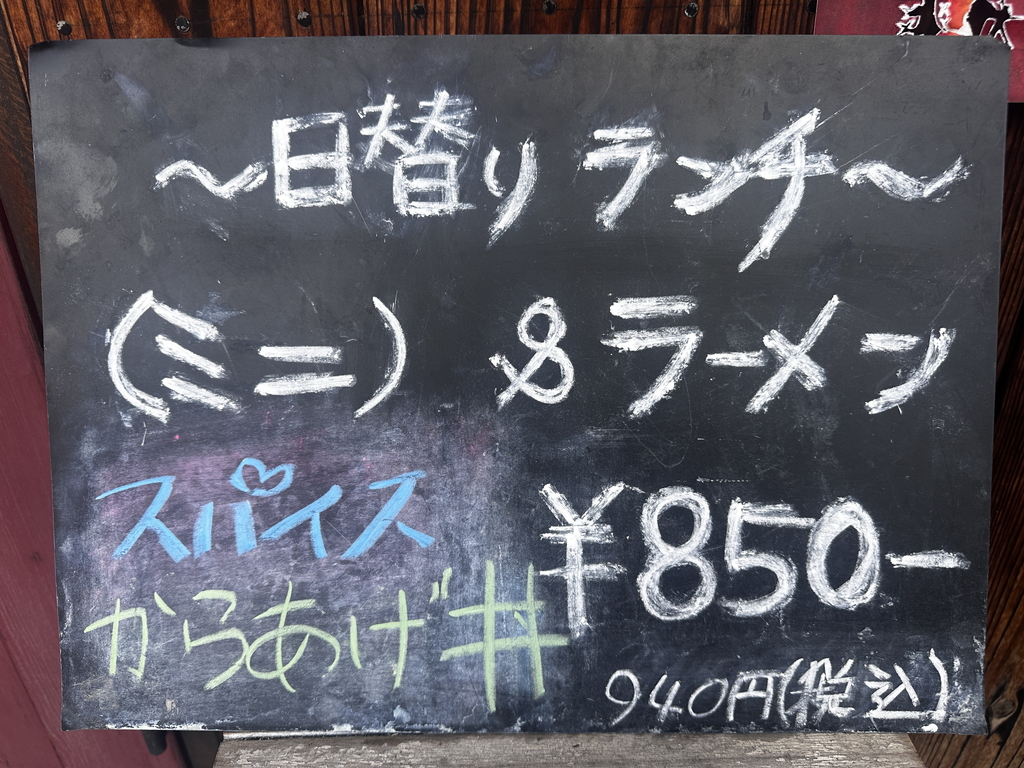 ～日替り ランチ～
(ミニ) & ラーメン
スパイス
からあげ丼
¥850ー
940円(税込)